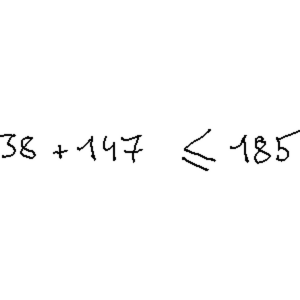 38 + 147 ≤ 185